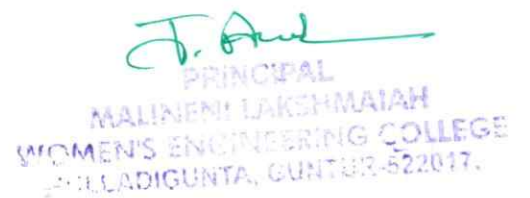 PRINCIPAL
MALINENI LAKSHMAIAH
WOMEN'S ENGINEERING COLLEGE
PULLADIGUNTA, GUNTUR-522017.